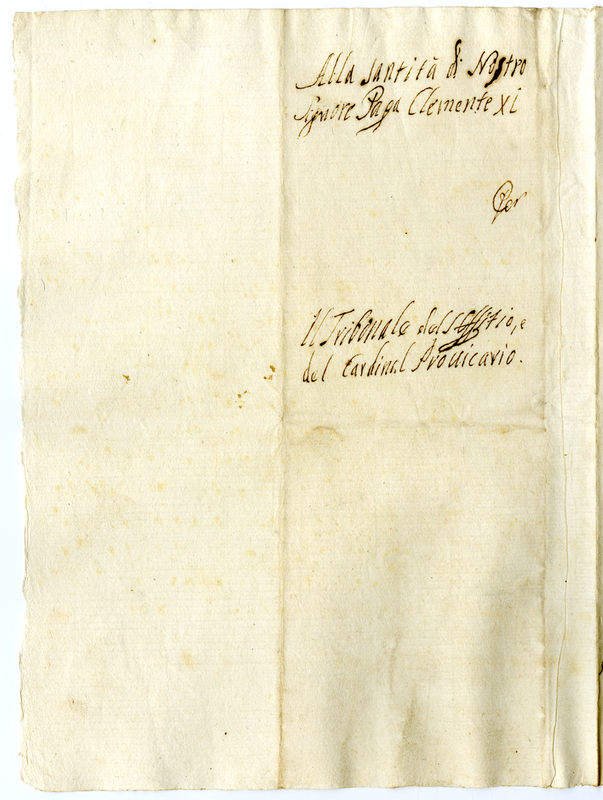 Alla Santità di Nostro
Signore Papa Clemente XI
Per
Il Tribonale del S. Offitio, e
del Cardinal Provicario.